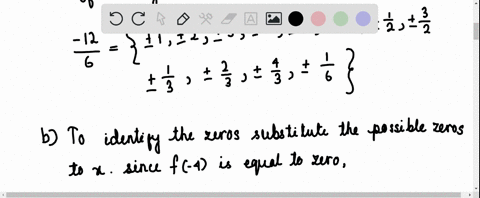 -12/6 = { ±1, ±2, 1/2, ± 3/2
± 1/3 , ± 2/3 , ± 4/3 , ± 1/6 }
b) To identify the zeros substitute the possible zeros
to x. since f(-4) is equal to zero,